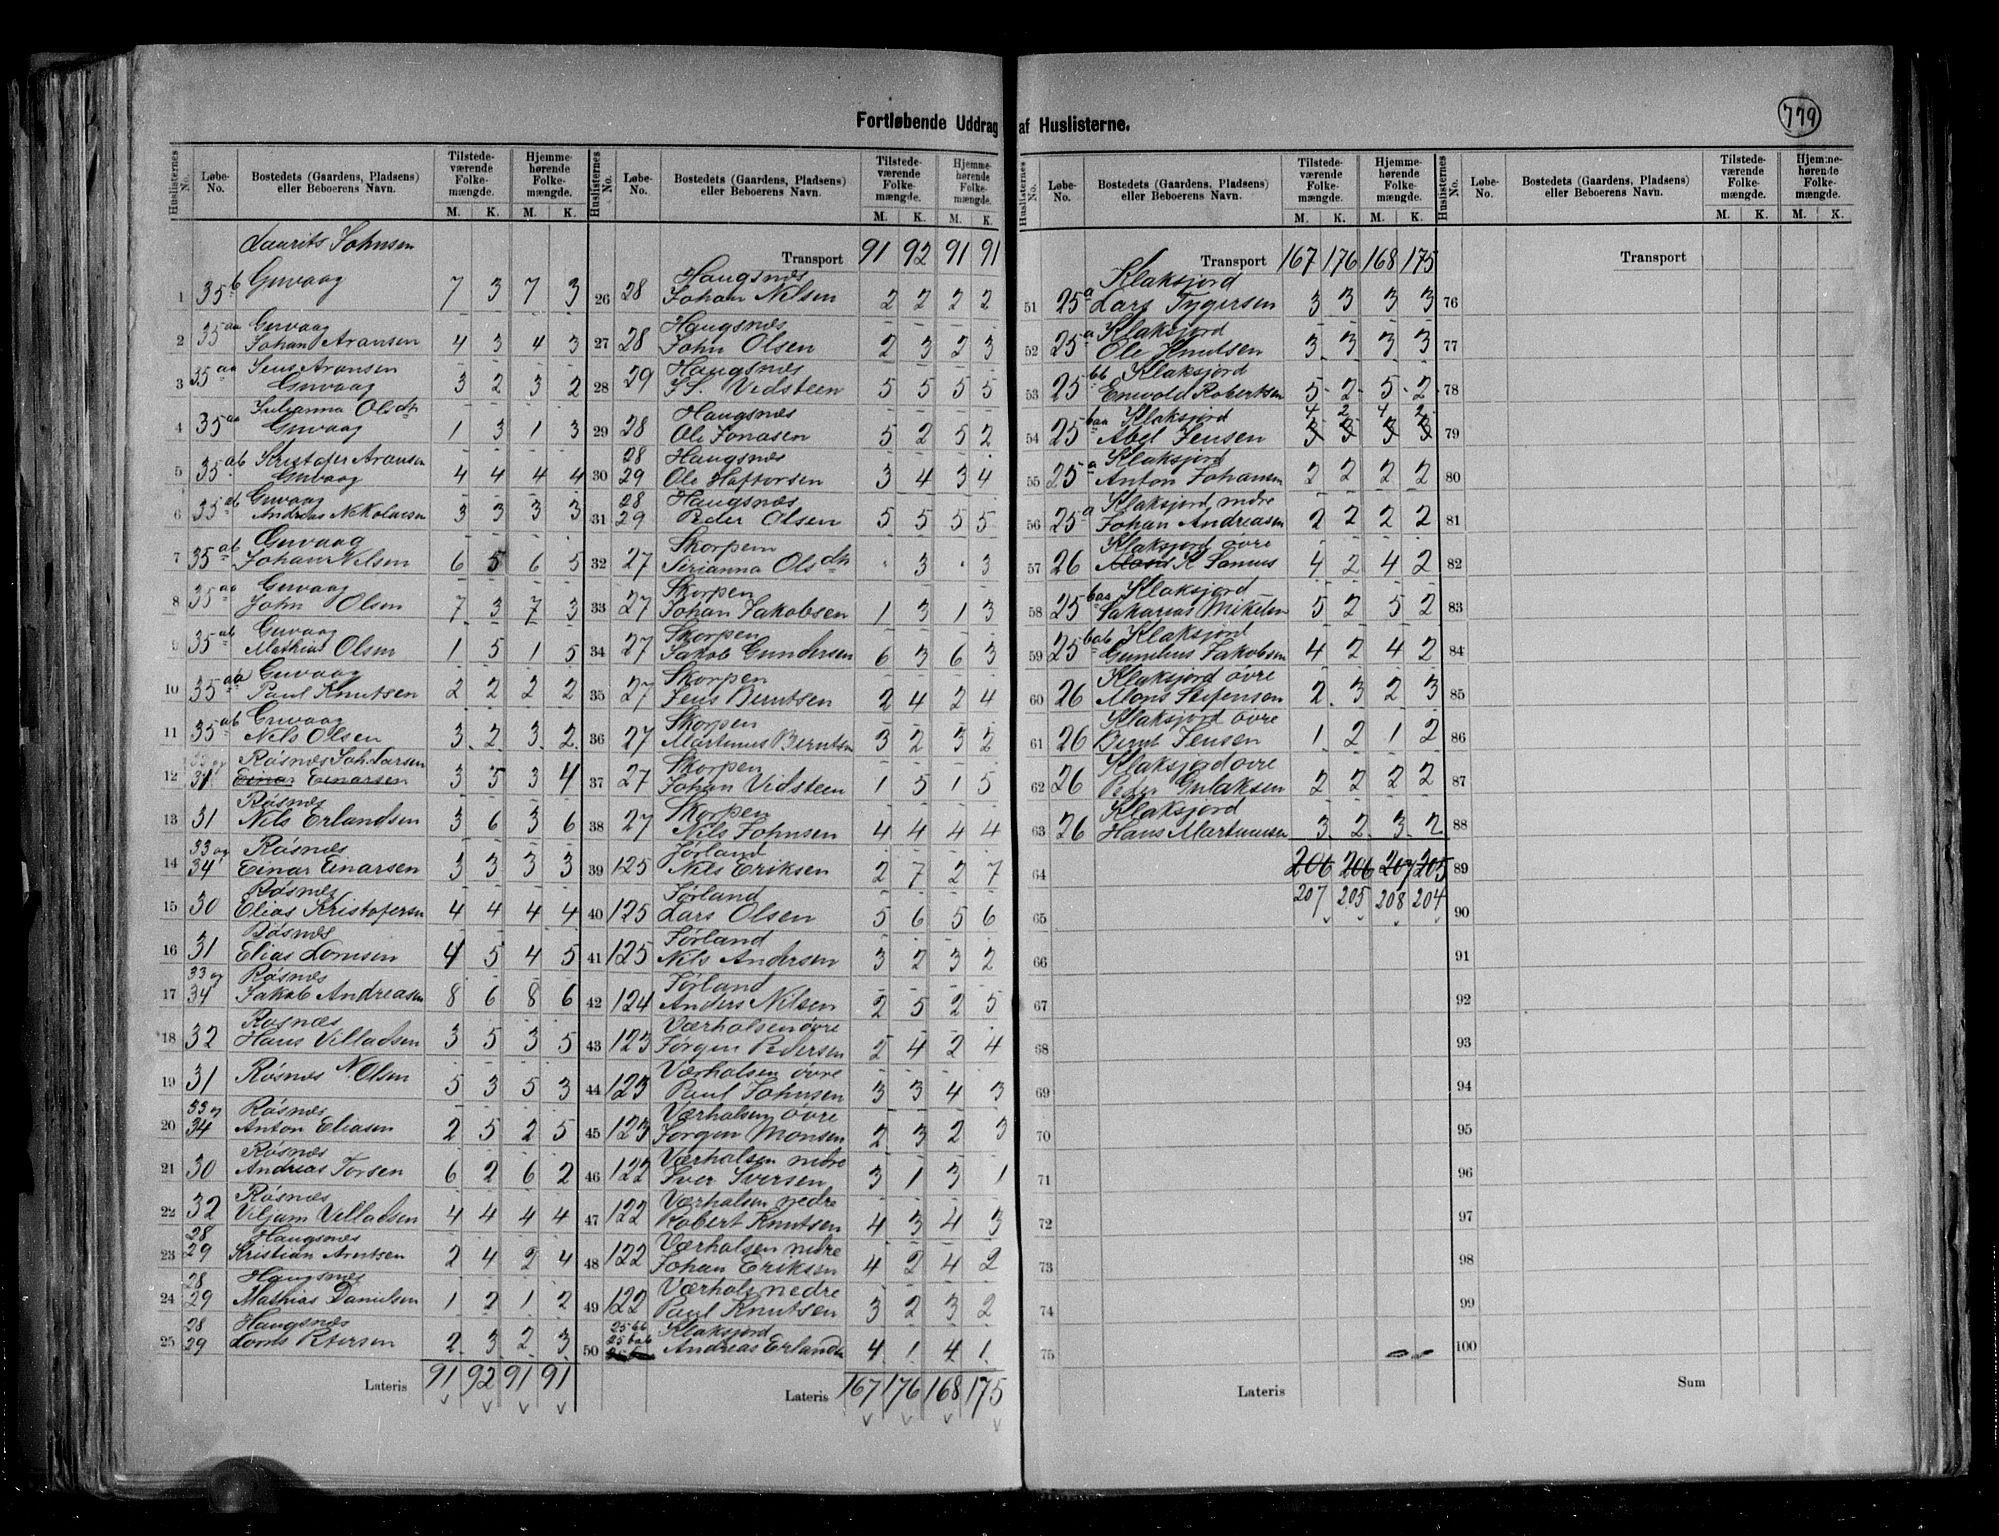 779
Fortløbende Uddrag af Huslisterne.
Huslisternes No. | Løbe-No. | Bostedets (Gaardens, Pladsens) eller Beboerens Navn. | Tilstedeværende Folkemængde. M. K. | Hjemmehørende Folkemængde. M. K.
Laurits Johnsen
1 35 b Guvaag 7 3 7 3
2 35 aa Guvaag Johan Aronsen 4 3 4 3
3 35 aa Jens Aronsen Guvaag 3 2 3 2
4 35 aa Julianna Olsdtr Guvaag 1 3 1 3
5 35 ab Kristofer Aronsen Guvaag 4 4 4 4
6 35 ab Guvaag Andreas Nikolaisen 3 3 3 3
7 35 ab Guvaag Johan Nilsen 6 5 6 5
8 35 aa Guvaag John Olsen 7 3 7 3
9 35 ab Guvaag Mathias Olsen 1 5 1 5
10 35 aa Guvaag Paul Knutsen 2 2 2 2
11 35 ab Guvaag Nils Olsen 3 2 3 2
12 Røsnæs Joh. Larsen Einar Einarsen 3 5 3 4
13 31 Røsnæs Nils Erlandsen 3 6 3 6
14 33 og 34 Røsnæs Einar Einarsen 3 3 3 3
15 30 Røsnæs Elias Kristofersen 4 4 4 4
16 31 Røsnæs Elias Lornsen 4 5 4 5
17 33 og 34 Røsnæs Jakob Andreasen 8 6 8 6
18 32 Røsnæs Hans Villadsen 3 5 3 5
19 31 Røsnæs N. Olsen 5 3 5 3
20 33 og 34 Røsnæs Anton Eliasen 2 5 2 5
21 30 Røsnæs Andreas Torsen 6 2 6 2
22 32 Røsnæs Viljam Villadsen 4 4 4 4
23 28 29 Haugsnæs Kristian Arntsen 2 4 2 4
24 28 29 Haugsnæs Mathias Danielsen 1 2 1 2
25 28 29 Haugsnæs Petersen 2 3 2 3
Lateris 91 92 91 91
Huslisternes No. | Løbe-No. | Bostedets (Gaardens, Pladsens) eller Beboerens Navn. | Tilstedeværende Folkemængde. M. K. | Hjemmehørende Folkemængde. M. K.
Transport 91 92 91 91
26 28 Haugsnæs Johan Nilsen 2 2 2 2
27 28 Haugsnæs John Olsen 2 3 2 3
28 29 Haugsnæs Vidsteen 5 5 5 5
29 28 Haugsnæs Ole Jonasen 5 2 5 2
30 28 29 Haugsnæs Ole Haftorsen 3 4 3 4
31 28 29 Haugsnæs Peder Olsen 5 5 5 5
32 27 Skorpen Serianna Olsdtr · 3 · 3
33 27 Skorpen Johan Jakobsen 1 3 1 3
34 27 Skorpen Jakob Gundersen 6 3 6 3
35 27 Skorpen Jens Berntsen 2 4 2 4
36 27 Skorpen Martinus Berntsn 3 2 3 2
37 27 Skorpen Johan Vidsteen 1 5 1 5
38 27 Skorpen Nils Johnsen 4 4 4 4
39 125 Førland Nils Eriksen 2 7 2 7
40 125 Førland Lars Olsen 5 6 5 6
41 125 Førland Nils Andersen 3 2 3 2
42 124 Førland Anders Nilsen 2 5 2 5
43 123 Værhalsen øvre Jørgen Pedersen 2 4 2 4
44 123 Værhalsen øvre Paul Johnsen 3 3 4 3
45 123 Værhalsen øvre Jørgen Monsen 2 3 2 3
46 122 Værhalsen nedre Iver Iversen 3 1 3 1
47 122 Værhalsen nedre Robert Knutsen 4 3 4 3
48 122 Værhalsen nedre Johan Eriksen 4 2 4 2
49 122 Værhals nedre Paul Knutsen 3 2 3 2
50 25 bb 25 bab Klaksjord Andreas Erlands 4 1 4 1
Lateris 167 176 168 175
Huslisternes No. | Løbe-No. | Bostedets (Gaardens, Pladsens) eller Beboerens Navn. | Tilstedeværende Folkemængde. M. K. | Hjemmehørende Folkemængde. M. K.
Transport 167 176 168 175
51 25 a Klaksjord Lars Tygersen 3 3 3 3
52 25 a Klaksjord Ole Knutsen 3 3 3 3
53 25 bb Klaksjord Enevold Robertsen 5 2 5 2
54 25 baa Klaksjord Abel Jensen 4 2 4 2 3 3 3 3
55 25 a Klaksjord Anton Johansen 2 2 2 2
56 25 a Klaksjord nedre Johan Andreasen 2 2 2 2
57 26 Klaksjord øvre 4 2 4 2
58 25 baa Klaksjord Sakarias Mikelsen 5 2 5 2
59 25 bab Klaksjord Jakobsen 4 2 4 2
60 26 Klaksjord øvre Mons Stefensen 2 3 2 3
61 26 Klaksjord øvre Bernt Jensen 1 2 1 2
62 26 Klaksjord øvre Peder Gulaksen 2 2 2 2
63 26 Klaksjord Hans Martinusen 3 2 3 2
64 206 206 207 205
65 207 205 208 204
66
67
68
69
70
71
72
73
74
75
Lateris
Huslisternes No. | Løbe-No. | Bostedets (Gaardens, Pladsens) eller Beboerens Navn. | Tilstedeværende Folkemængde. M. K. | Hjemmehørende Folkemængde. M. K.
Transport
76
77
78
79
80
81
82
83
84
85
86
87
88
89
90
91
92
93
94
95
96
97
98
99
100
Sum